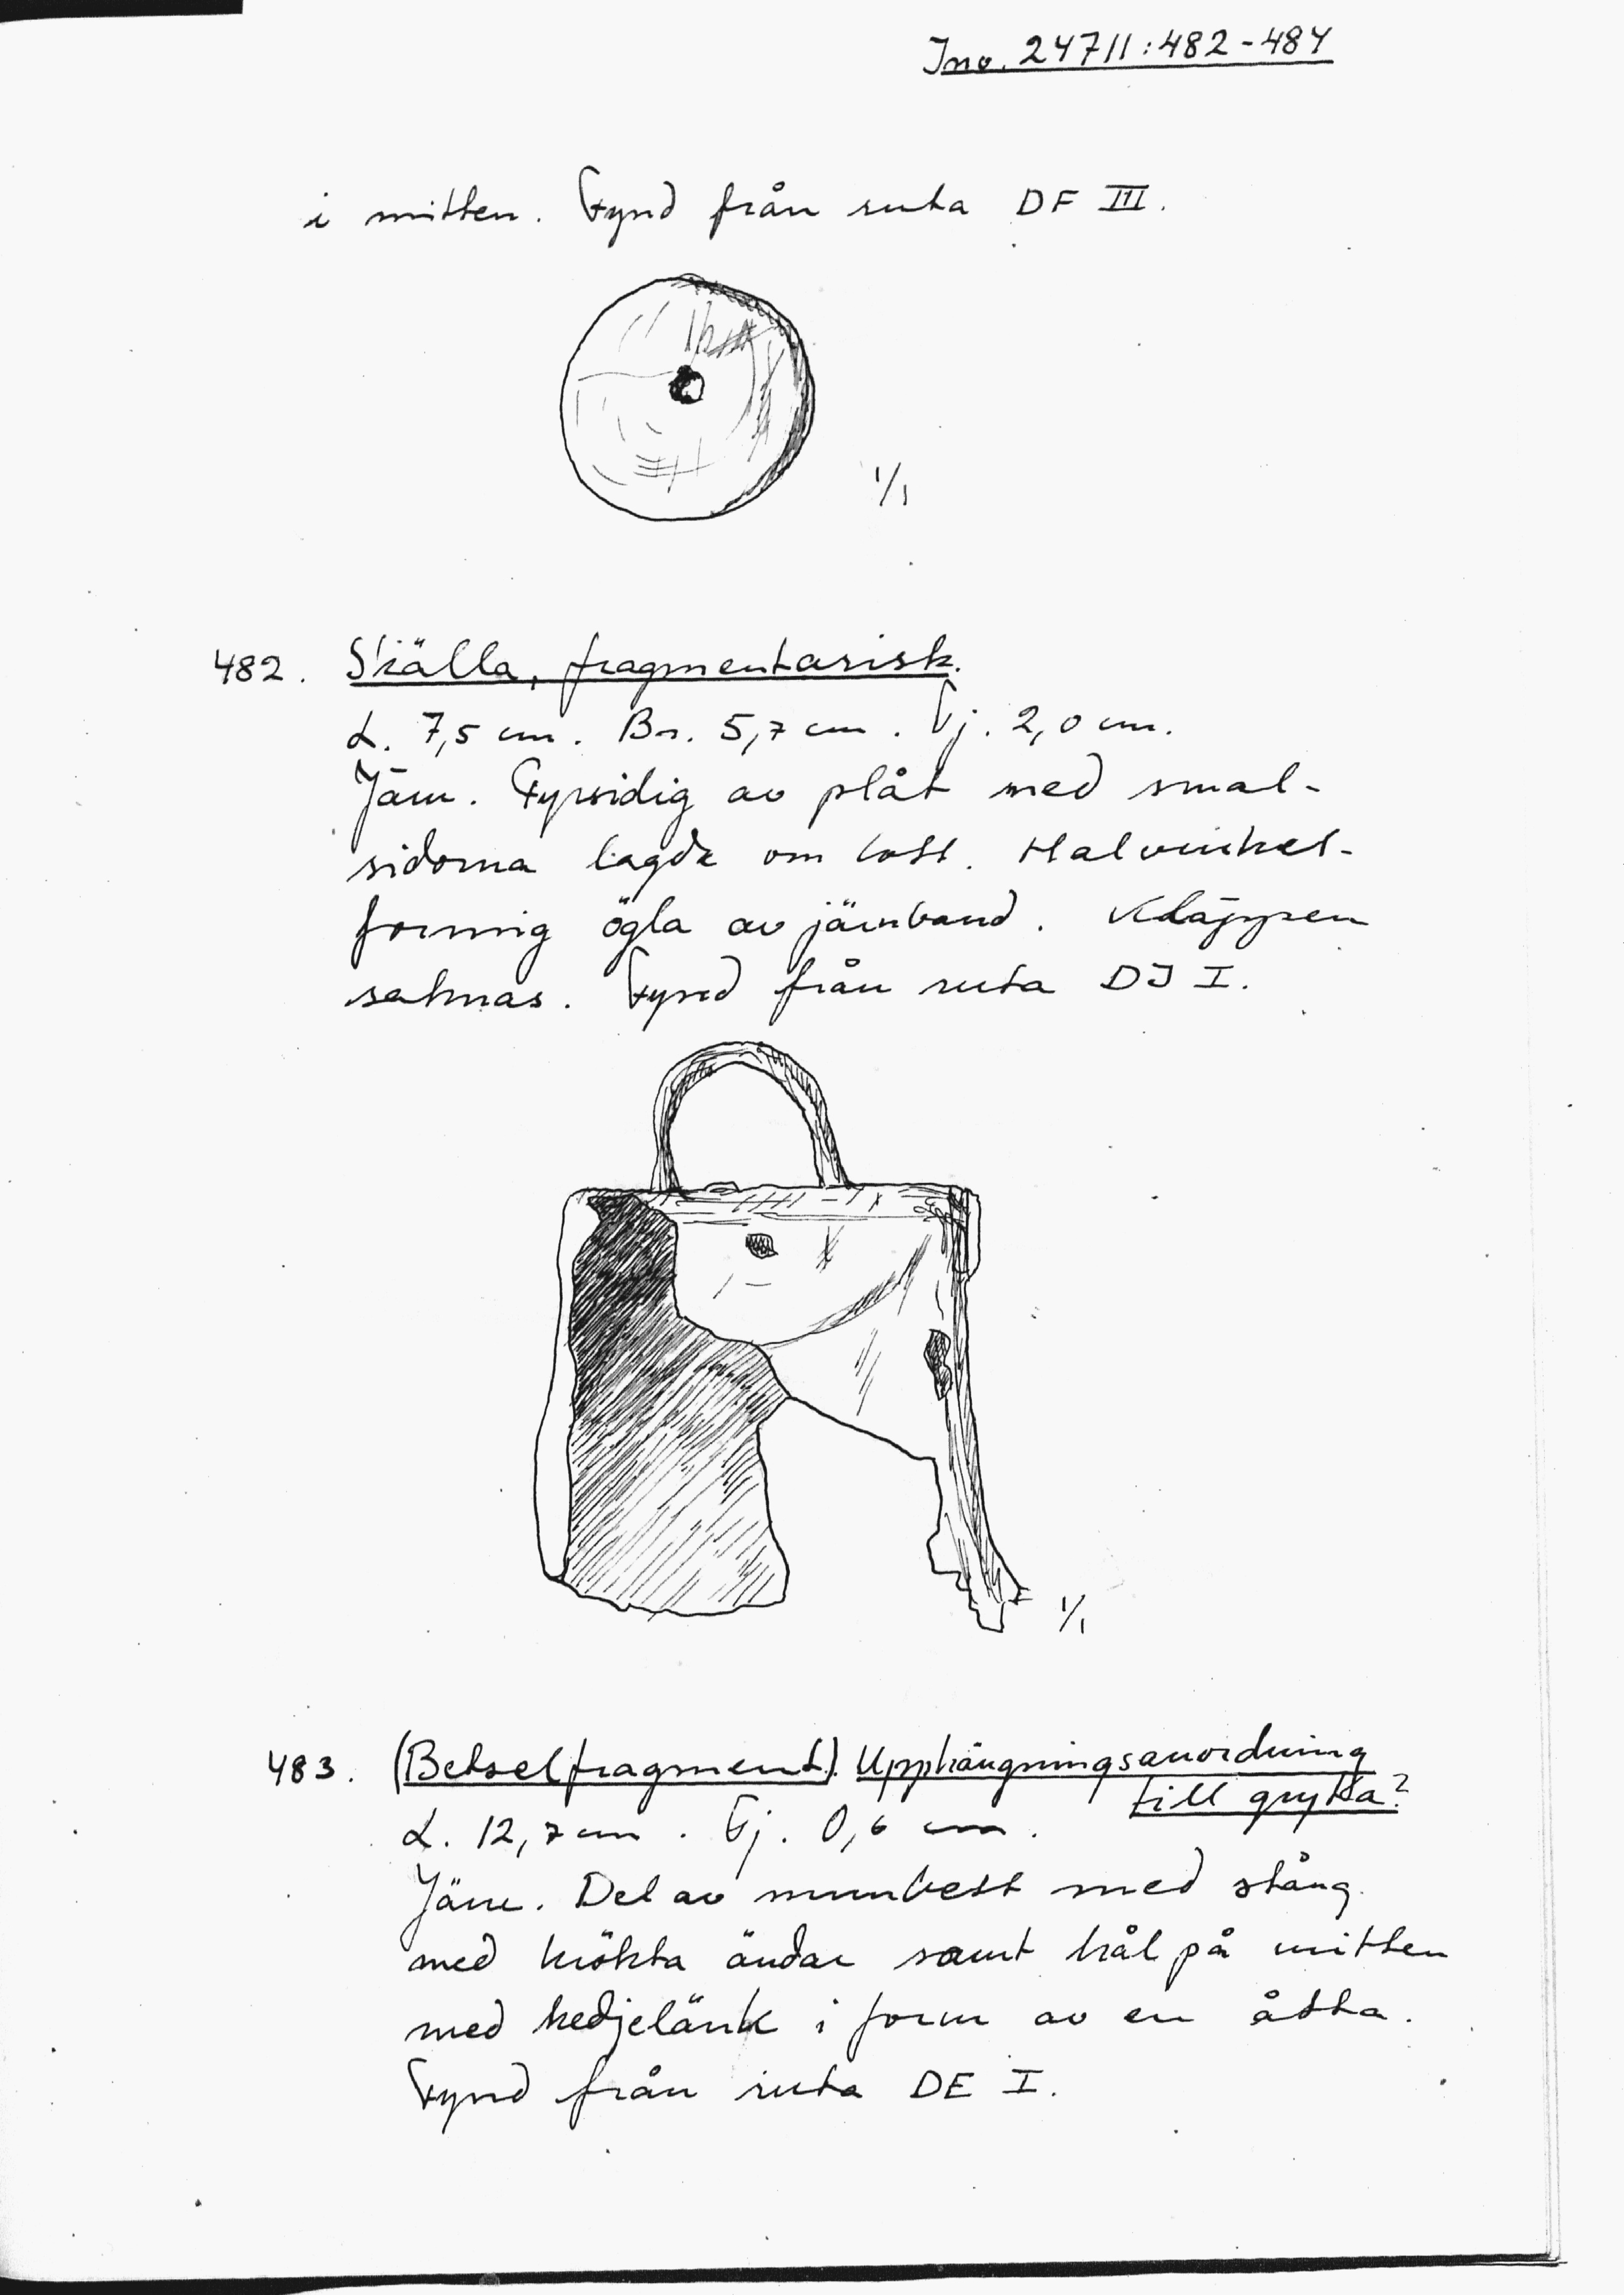 Inv. 24711:482-484
i mitten. Fynd från ruta DF III.
1/1
482. Skälla, fragmentarisk.
L. 7,5 cm. Br. 5,7 cm. Tj. 2,0 cm.
Järn. Fyrsidig av plåt med smal-
sidorna lagda om lott. Halvcirkel-
formig ögla av järnband. Kläppen
saknas. Fynd från ruta DJ I.
1/1
483. (Betselfragment). Upphängningsanordning
till gryta?
L. 12,7 cm. Tj. 0,6 cm.
Järn. Del av munbett med stång
med krökta ändar samt hål på mitten
med kedjelänk i form av en åtta.
Fynd från ruta DE I.